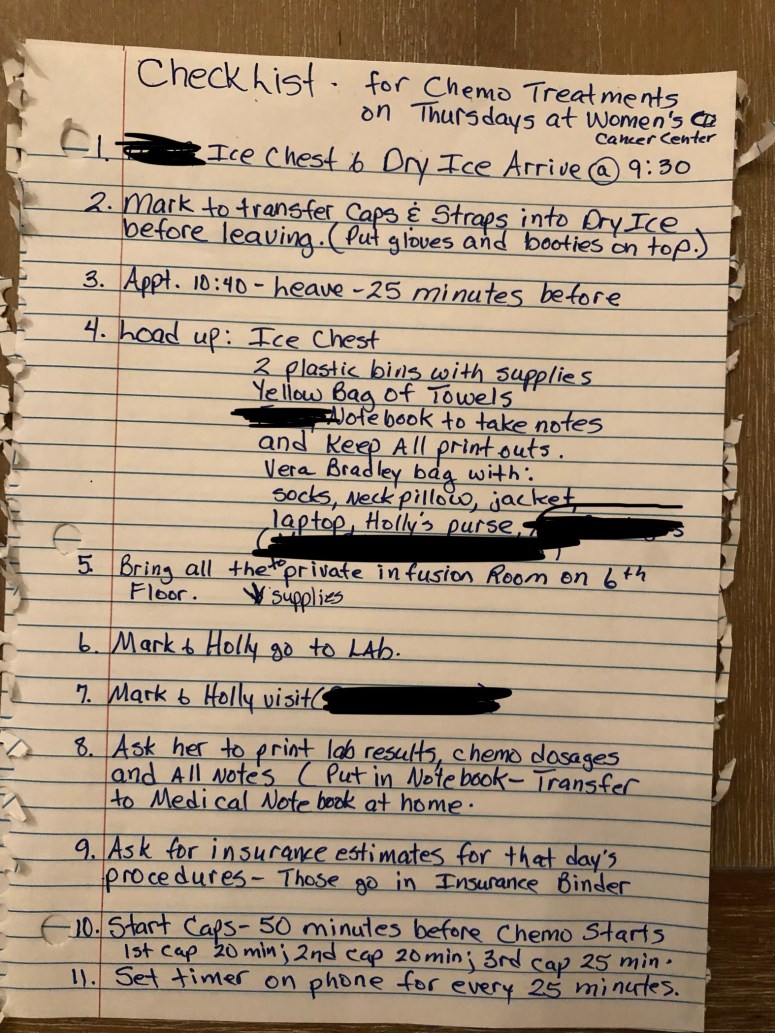 Checklist - for Chemo Treatments
on Thursdays at Women's
Cancer Center
1. Ice Chest & Dry Ice Arrive @ 9:30
2. Mark to transfer Caps & Straps into Dry Ice
before leaving. (Put gloves and booties on top.)
3. Appt. 10:40 - Leave - 25 minutes before
4. Load up: Ice Chest
2 plastic bins with supplies
Yellow Bag of Towels
Notebook to take notes
and Keep All print outs.
Vera Bradley bag with:
socks, Neck pillow, jacket,
laptop, Holly's purse,
5. Bring all the supplies to private infusion Room on 6th
Floor.
6. Mark & Holly go to LAb.
7. Mark & Holly visit (
8. Ask her to print lab results, chemo dosages
and All Notes ( Put in Notebook - Transfer
to Medical Notebook at home.
9. Ask for insurance estimates for that day's
procedures - Those go in Insurance Binder
10. Start Caps - 50 minutes before Chemo Starts
1st cap 20 min; 2nd cap 20 min; 3rd cap 25 min.
11. Set timer on phone for every 25 minutes.